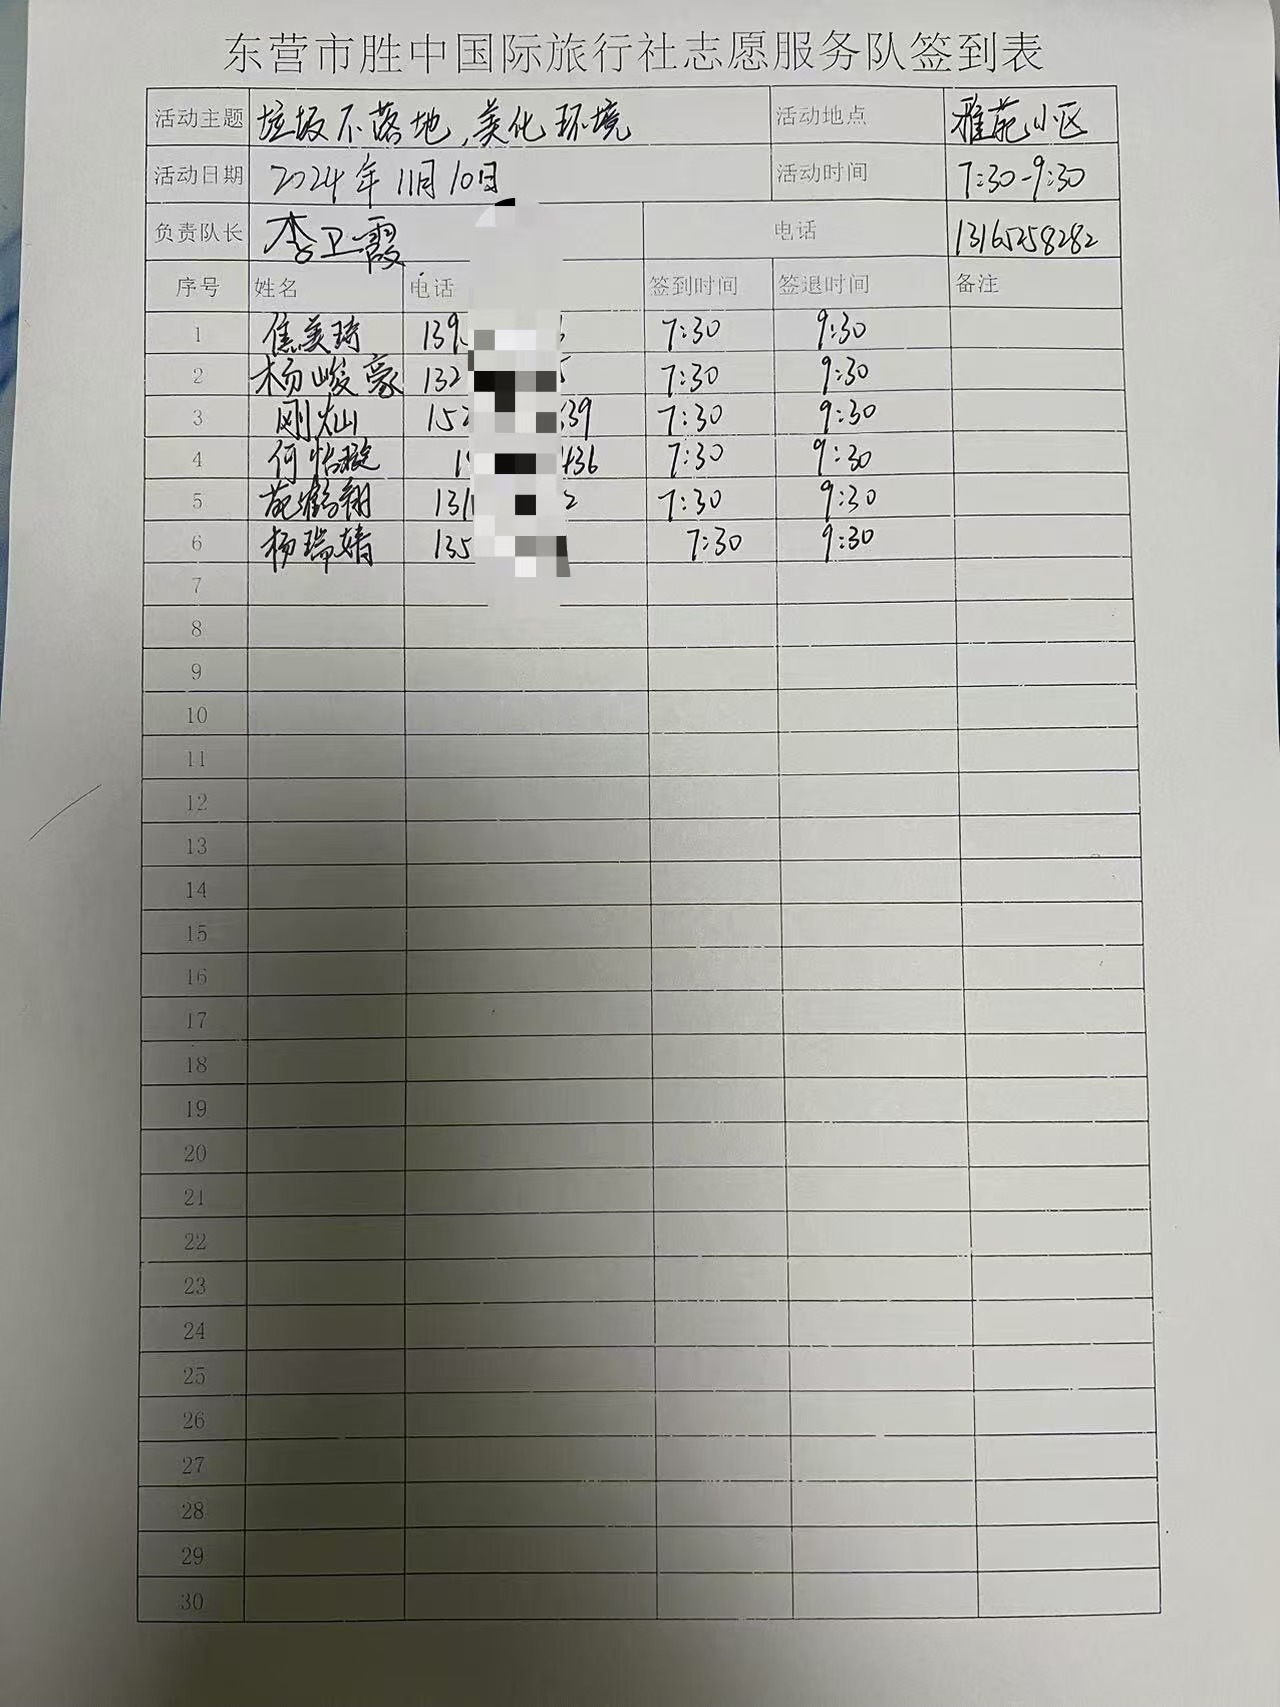 东营市胜中国际旅行社志愿服务队签到表
活动主题 垃圾不落地,美化环境 活动地点 雅苑小区
活动日期 2024年11月10日 活动时间 7:30-9:30
负责队长 李卫霞 电话 13165258282
序号 姓名 电话 签到时间 签退时间 备注
1 焦美琦 139 7:30 9:30
2 杨峻豪 132 7:30 9:30
3 刚灿 152 39 7:30 9:30
4 何怡璇 436 7:30 9:30
5 苑鹤翔 131 2 7:30 9:30
6 杨瑞婧 135 7:30 9:30
7
8
9
10
11
12
13
14
15
16
17
18
19
20
21
22
23
24
25
26
27
28
29
30